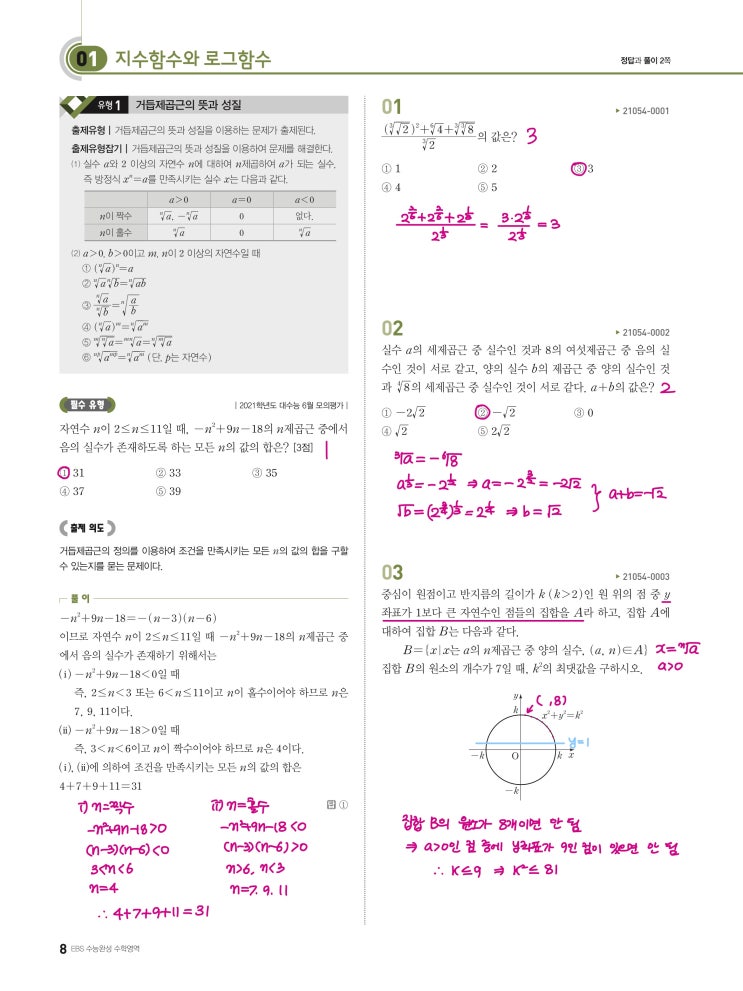 01 지수함수와 로그함수
정답과 풀이 2쪽
유형 1 거듭제곱근의 뜻과 성질
출제유형 | 거듭제곱근의 뜻과 성질을 이용하는 문제가 출제된다.
출제유형잡기 | 거듭제곱근의 뜻과 성질을 이용하여 문제를 해결한다.
(1) 실수 a와 2 이상의 자연수 n에 대하여 n제곱하여 a가 되는 실수,
즉 방정식 xⁿ=a를 만족시키는 실수 x는 다음과 같다.
a>0 a=0 a<0
n이 짝수 ⁿ√a, -ⁿ√a 0 없다.
n이 홀수 ⁿ√a 0 ⁿ√a
(2) a>0, b>0이고 m, n이 2 이상의 자연수일 때
① (ⁿ√a)ⁿ=a
② ⁿ√a ⁿ√b=ⁿ√ab
③ ⁿ√a/ⁿ√b=ⁿ√(a/b)
④ (ⁿ√a)ᵐ=ⁿ√aᵐ
⑤ ᵐ√ⁿ√a=ᵐⁿ√a=ⁿ√ᵐ√a
⑥ ⁿᵖ√aᵐᵖ=ⁿ√aᵐ (단, p는 자연수)
필수 유형
| 2021학년도 대수능 6월 모의평가 |
자연수 n이 2≤n≤11일 때, -n²+9n-18의 n제곱근 중에서
음의 실수가 존재하도록 하는 모든 n의 값의 합은? [3점]
① 31 ② 33 ③ 35
④ 37 ⑤ 39
출제 의도
거듭제곱근의 정의를 이용하여 조건을 만족시키는 모든 n의 값의 합을 구할
수 있는지를 묻는 문제이다.
풀이
-n²+9n-18=-(n-3)(n-6)
이므로 자연수 n이 2≤n≤11일 때 -n²+9n-18의 n제곱근 중
에서 음의 실수가 존재하기 위해서는
(i) -n²+9n-18<0일 때
즉, 2≤n<3 또는 6<n≤11이고 n이 홀수이어야 하므로 n은
7, 9, 11이다.
(ii) -n²+9n-18>0일 때
즉, 3<n<6이고 n이 짝수이어야 하므로 n은 4이다.
(i), (ii)에 의하여 조건을 만족시키는 모든 n의 값의 합은
4+7+9+11=31
답 ①
i) n=짝수
-n²+9n-18>0
(n-3)(n-6)<0
3<n<6
n=4
ii) n=홀수
-n²+9n-18<0
(n-3)(n-6)>0
n>6, n<3
n=7, 9, 11
∴ 4+7+9+11=31
8 EBS 수능완성 수학영역
01
▸ 21054-0001
((³√√2)²+⁶√4+³√³√8)/³√2의 값은? 3
① 1 ② 2 ③ 3
④ 4 ⑤ 5
(2^(2/6)+2^(2/6)+2^(1/3))/2^(1/3) = 3·2^(1/3)/2^(1/3) = 3
02
▸ 21054-0002
실수 a의 세제곱근 중 실수인 것과 8의 여섯제곱근 중 음의 실
수인 것이 서로 같고, 양의 실수 b의 제곱근 중 양의 실수인 것
과 ⁴√8의 세제곱근 중 실수인 것이 서로 같다. a+b의 값은? 2
① -2√2 ② -√2 ③ 0
④ √2 ⑤ 2√2
³√a = -⁶√8
a^(1/3) = -2^(1/2) ⇒ a = -2^(3/2) = -2√2
√b = (2^(3/4))^(1/3) = 2^(1/4) ⇒ b = √2
a+b=-√2
03
▸ 21054-0003
중심이 원점이고 반지름의 길이가 k (k>2)인 원 위의 점 중 y
좌표가 1보다 큰 자연수인 점들의 집합을 A라 하고, 집합 A에
대하여 집합 B는 다음과 같다.
B={x|x는 a의 n제곱근 중 양의 실수, (a, n)∈A}
x=ⁿ√a
집합 B의 원소의 개수가 7일 때, k²의 최댓값을 구하시오.
a>0
y
k
( ,8)
x²+y²=k²
y=1
-k O k x
-k
집합 B의 원소가 8개이면 안 됨
⇒ a>0인 점 중에 y좌표가 9인 점이 있으면 안 됨
∴ k≤9 ⇒ k²≤81